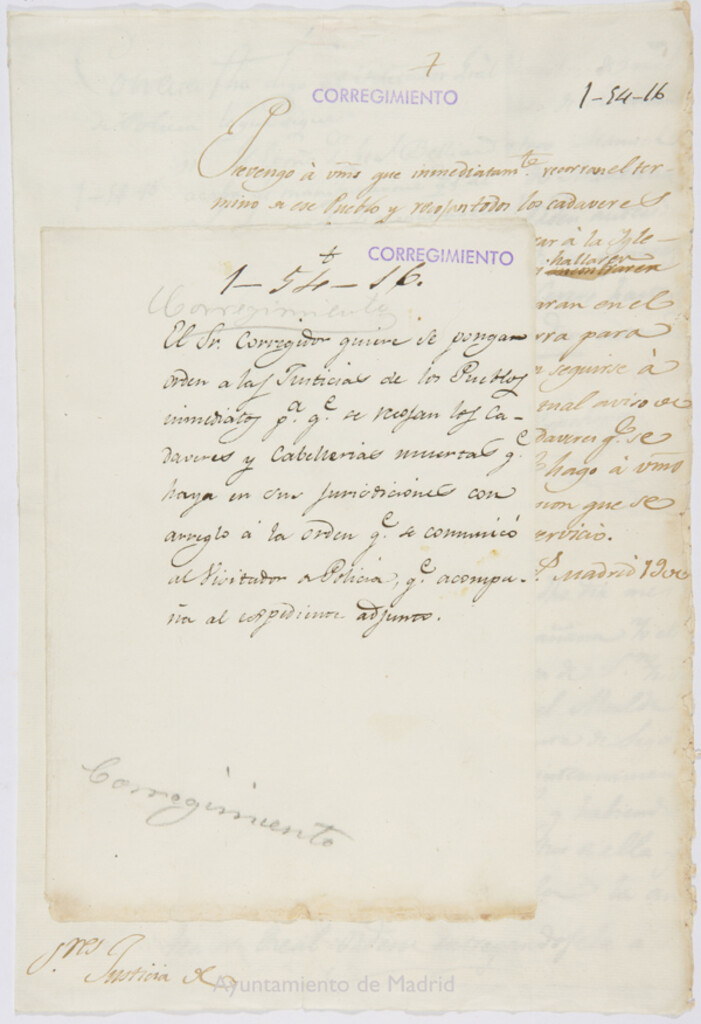 +
CORREGIMIENTO
1-54-16
Prevengo à vms que inmediatamte. recorran el ter-
mino de ese Pueblo y recojan todos los cadaveres
rar à la Igle-
hallaren
encontraren
aran en el
rra para
n seguirse à
tual aviso de
daveres qe. se
hago à vms
non que se
ervicio.
Madrid 19 de
+
CORREGIMIENTO
1-54-16.
Corregimiento
El Sr. Corregidor quiere se pongan
orden a las Justicias de los Pueblos
inmediatos pa. qe. se recojan los Ca-
daveres y Caballerias muertas qe.
haya en sus Jurisdiciones con
arreglo à la orden qe. se comunicó
al Visitador de Policia, qe. acompa-
ña al expediente adjunto.
Corregimiento
Sres Justicia de
Ayuntamiento de Madrid